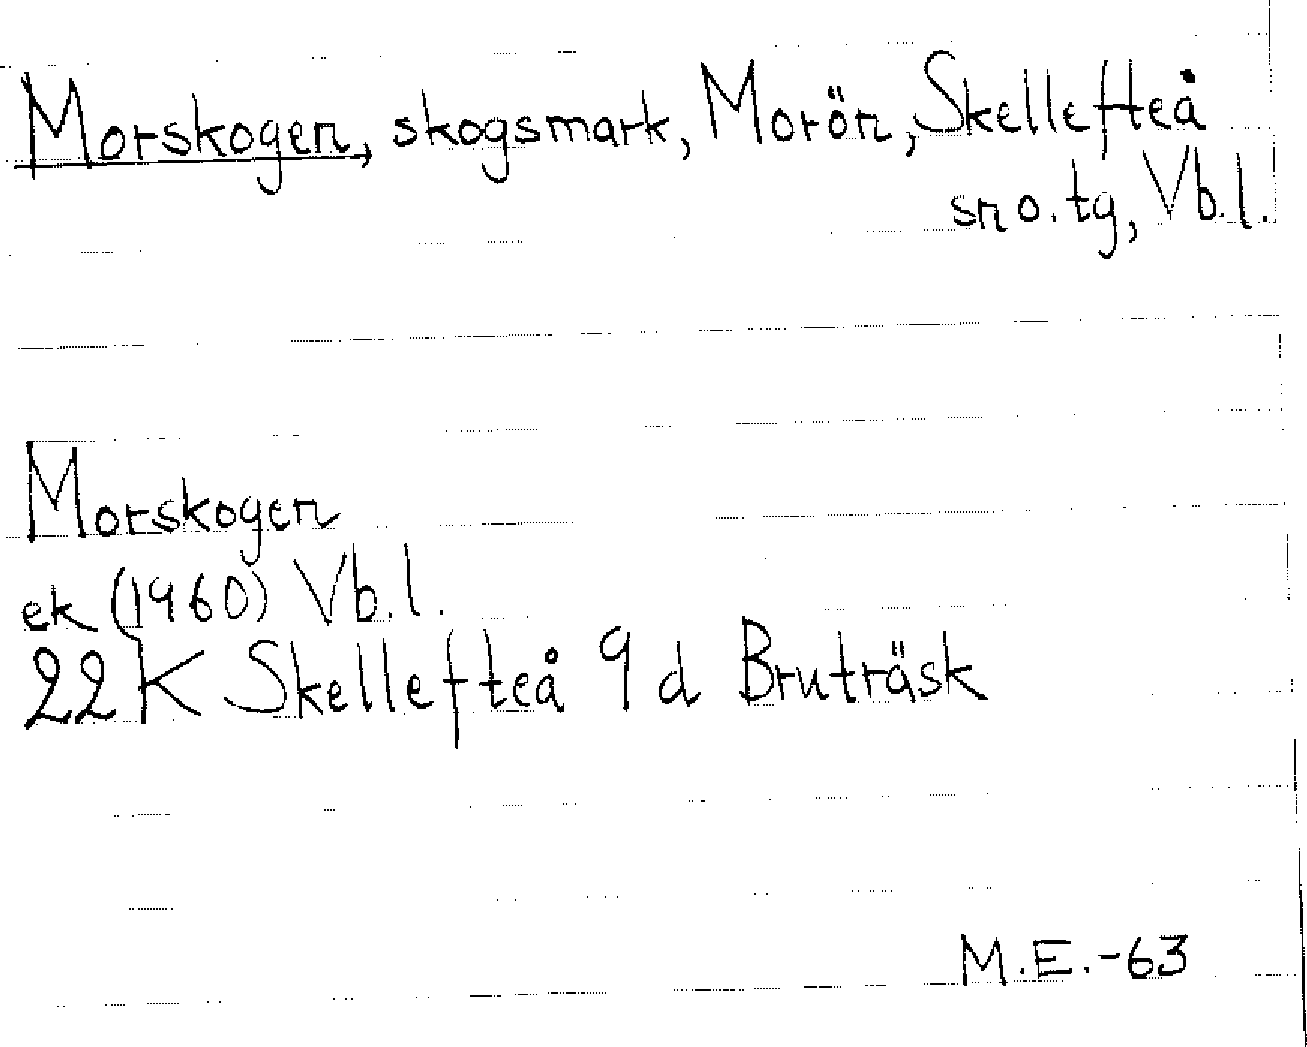 Morskogen, skogsmark, Morön, Skellefteå
sn o. tg, Vb.l.
Morskogen
ek (1960) Vb.l.
22K Skellefteå 9 d Bruträsk
M.E.-63